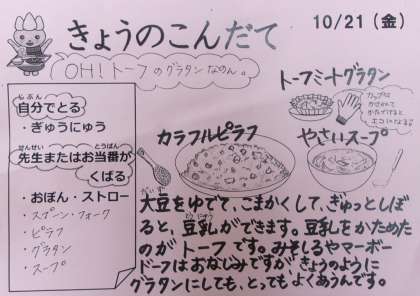 きょうのこんだて
10/21（金）
OH！トーフのグラタンなのん。
トーフミートグラタン
カップは
かさねて
かたづけると
エコになるよ！
じぶん
自分でとる
・ぎゅうにゅう
せんせい とうばん
先生またはお当番が
くばる
・おぼん・ストロー
・スプーン・フォーク
・ピラフ
・グラタン
・スープ
カラフルピラフ
やさいスープ
だいず
大豆をゆでて、こまかくして、ぎゅっとしぼ
とうにゅう
ると、豆乳ができます。豆乳をかためた
のがトーフです。みそしるやマーボー
ドーフはおなじみですが、きょうのように
グラタンにしても、とってもよくあうんです。